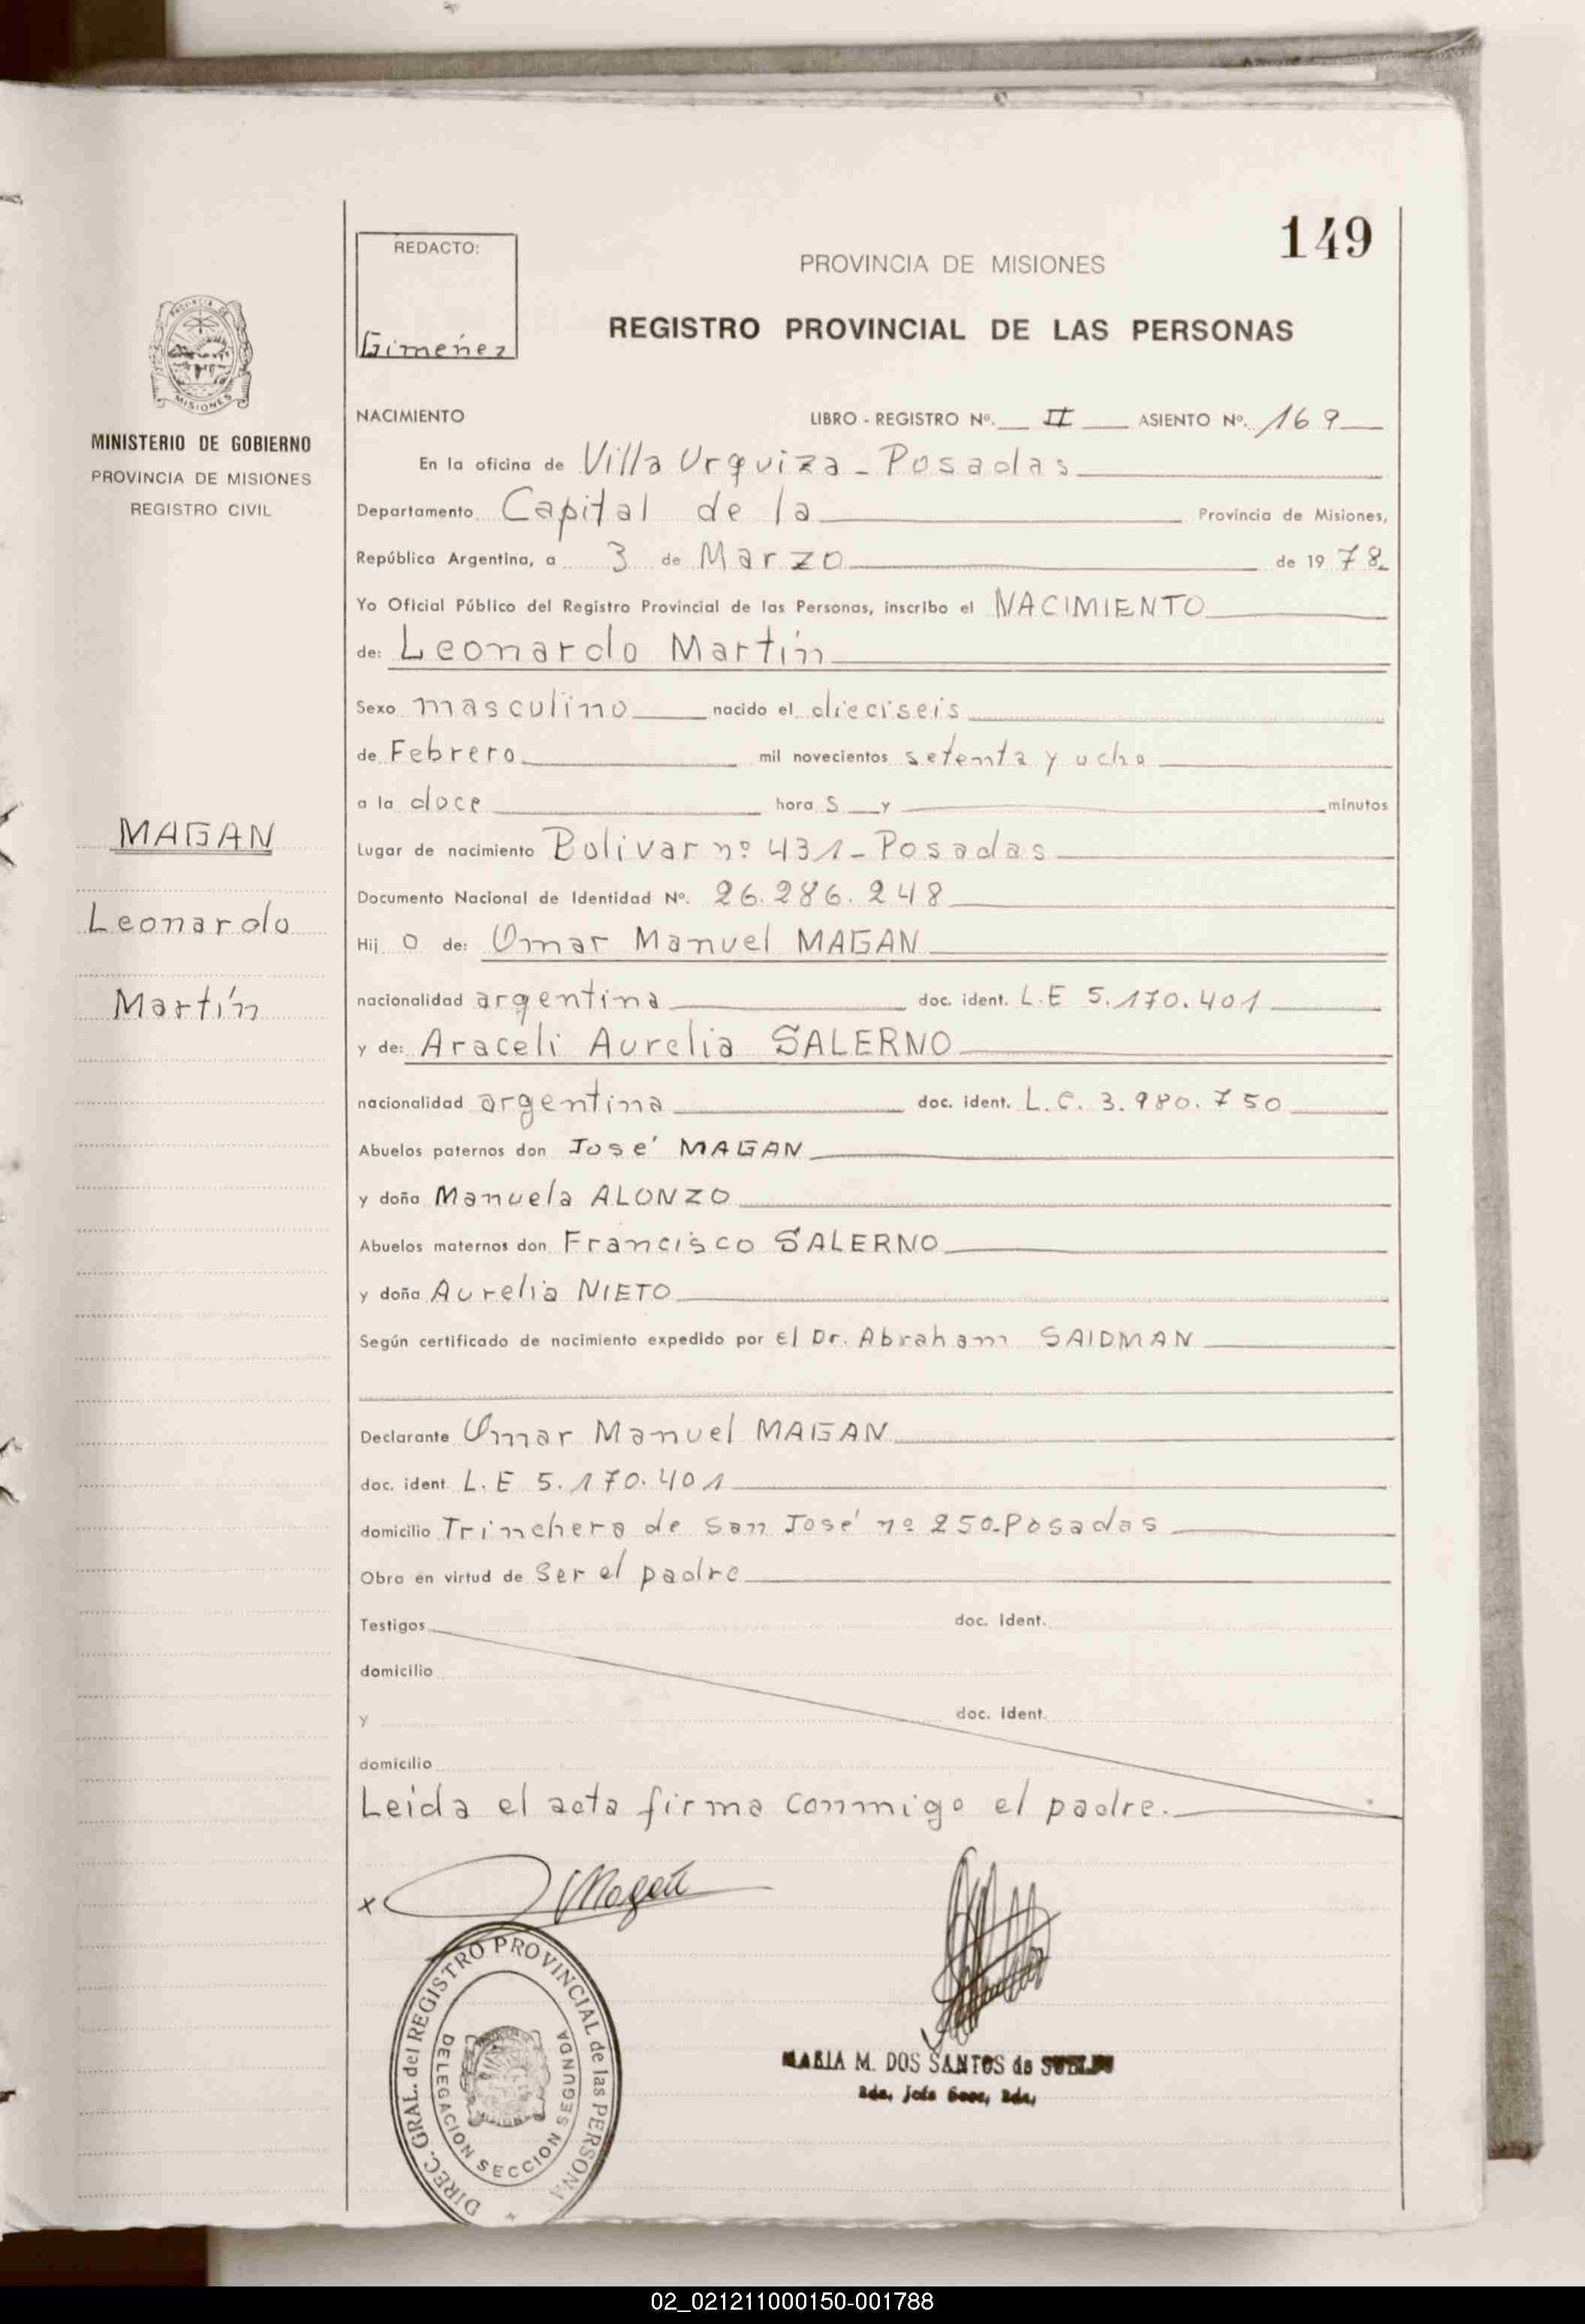 149
REDACTO:
Gimeñez
PROVINCIA DE MISIONES
REGISTRO PROVINCIAL DE LAS PERSONAS
MISIONES
MINISTERIO DE GOBIERNO
PROVINCIA DE MISIONES
REGISTRO CIVIL
NACIMIENTO LIBRO - REGISTRO Nº. II ASIENTO Nº. 169
En la oficina de Villa Urquiza - Posadas
Departamento Capital de la Provincia de Misiones,
República Argentina, a 3 de Marzo de 1978
Yo Oficial Público del Registro Provincial de las Personas, inscribo el NACIMIENTO
de: Leonardo Martín
Sexo masculino nacido el dieciseis
de Febrero mil novecientos setenta y ocho
a la doce hora S y minutos
MAGAN
Leonardo
Martín
Lugar de nacimiento Bolivar nº 431 - Posadas
Documento Nacional de Identidad Nº. 26.286.248
Hij o de: Omar Manuel MAGAN
nacionalidad argentina doc. ident. L.E 5.170.401
y de: Araceli Aurelia SALERNO
nacionalidad argentina doc. ident. L.C. 3.980.750
Abuelos paternos don José MAGAN
y doña Manuela ALONZO
Abuelos maternos don Francisco SALERNO
y doña Aurelia NIETO
Según certificado de nacimiento expedido por El Dr. Abraham SAIDMAN
Declarante Omar Manuel MAGAN
doc. ident. L.E 5.170.401
domicilio Trinchera de San José nº 250-Posadas
Obra en virtud de Ser el padre
Testigos doc. Ident.
domicilio
y doc. ident.
domicilio
Leída el acta firma conmigo el padre.
x Magan
DIREC. GRAL. del REGISTRO PROVINCIAL de las PERSONA
DELEGACION SECCION SEGUNDA
MARIA M. DOS SANTOS de
02_021211000150-001788